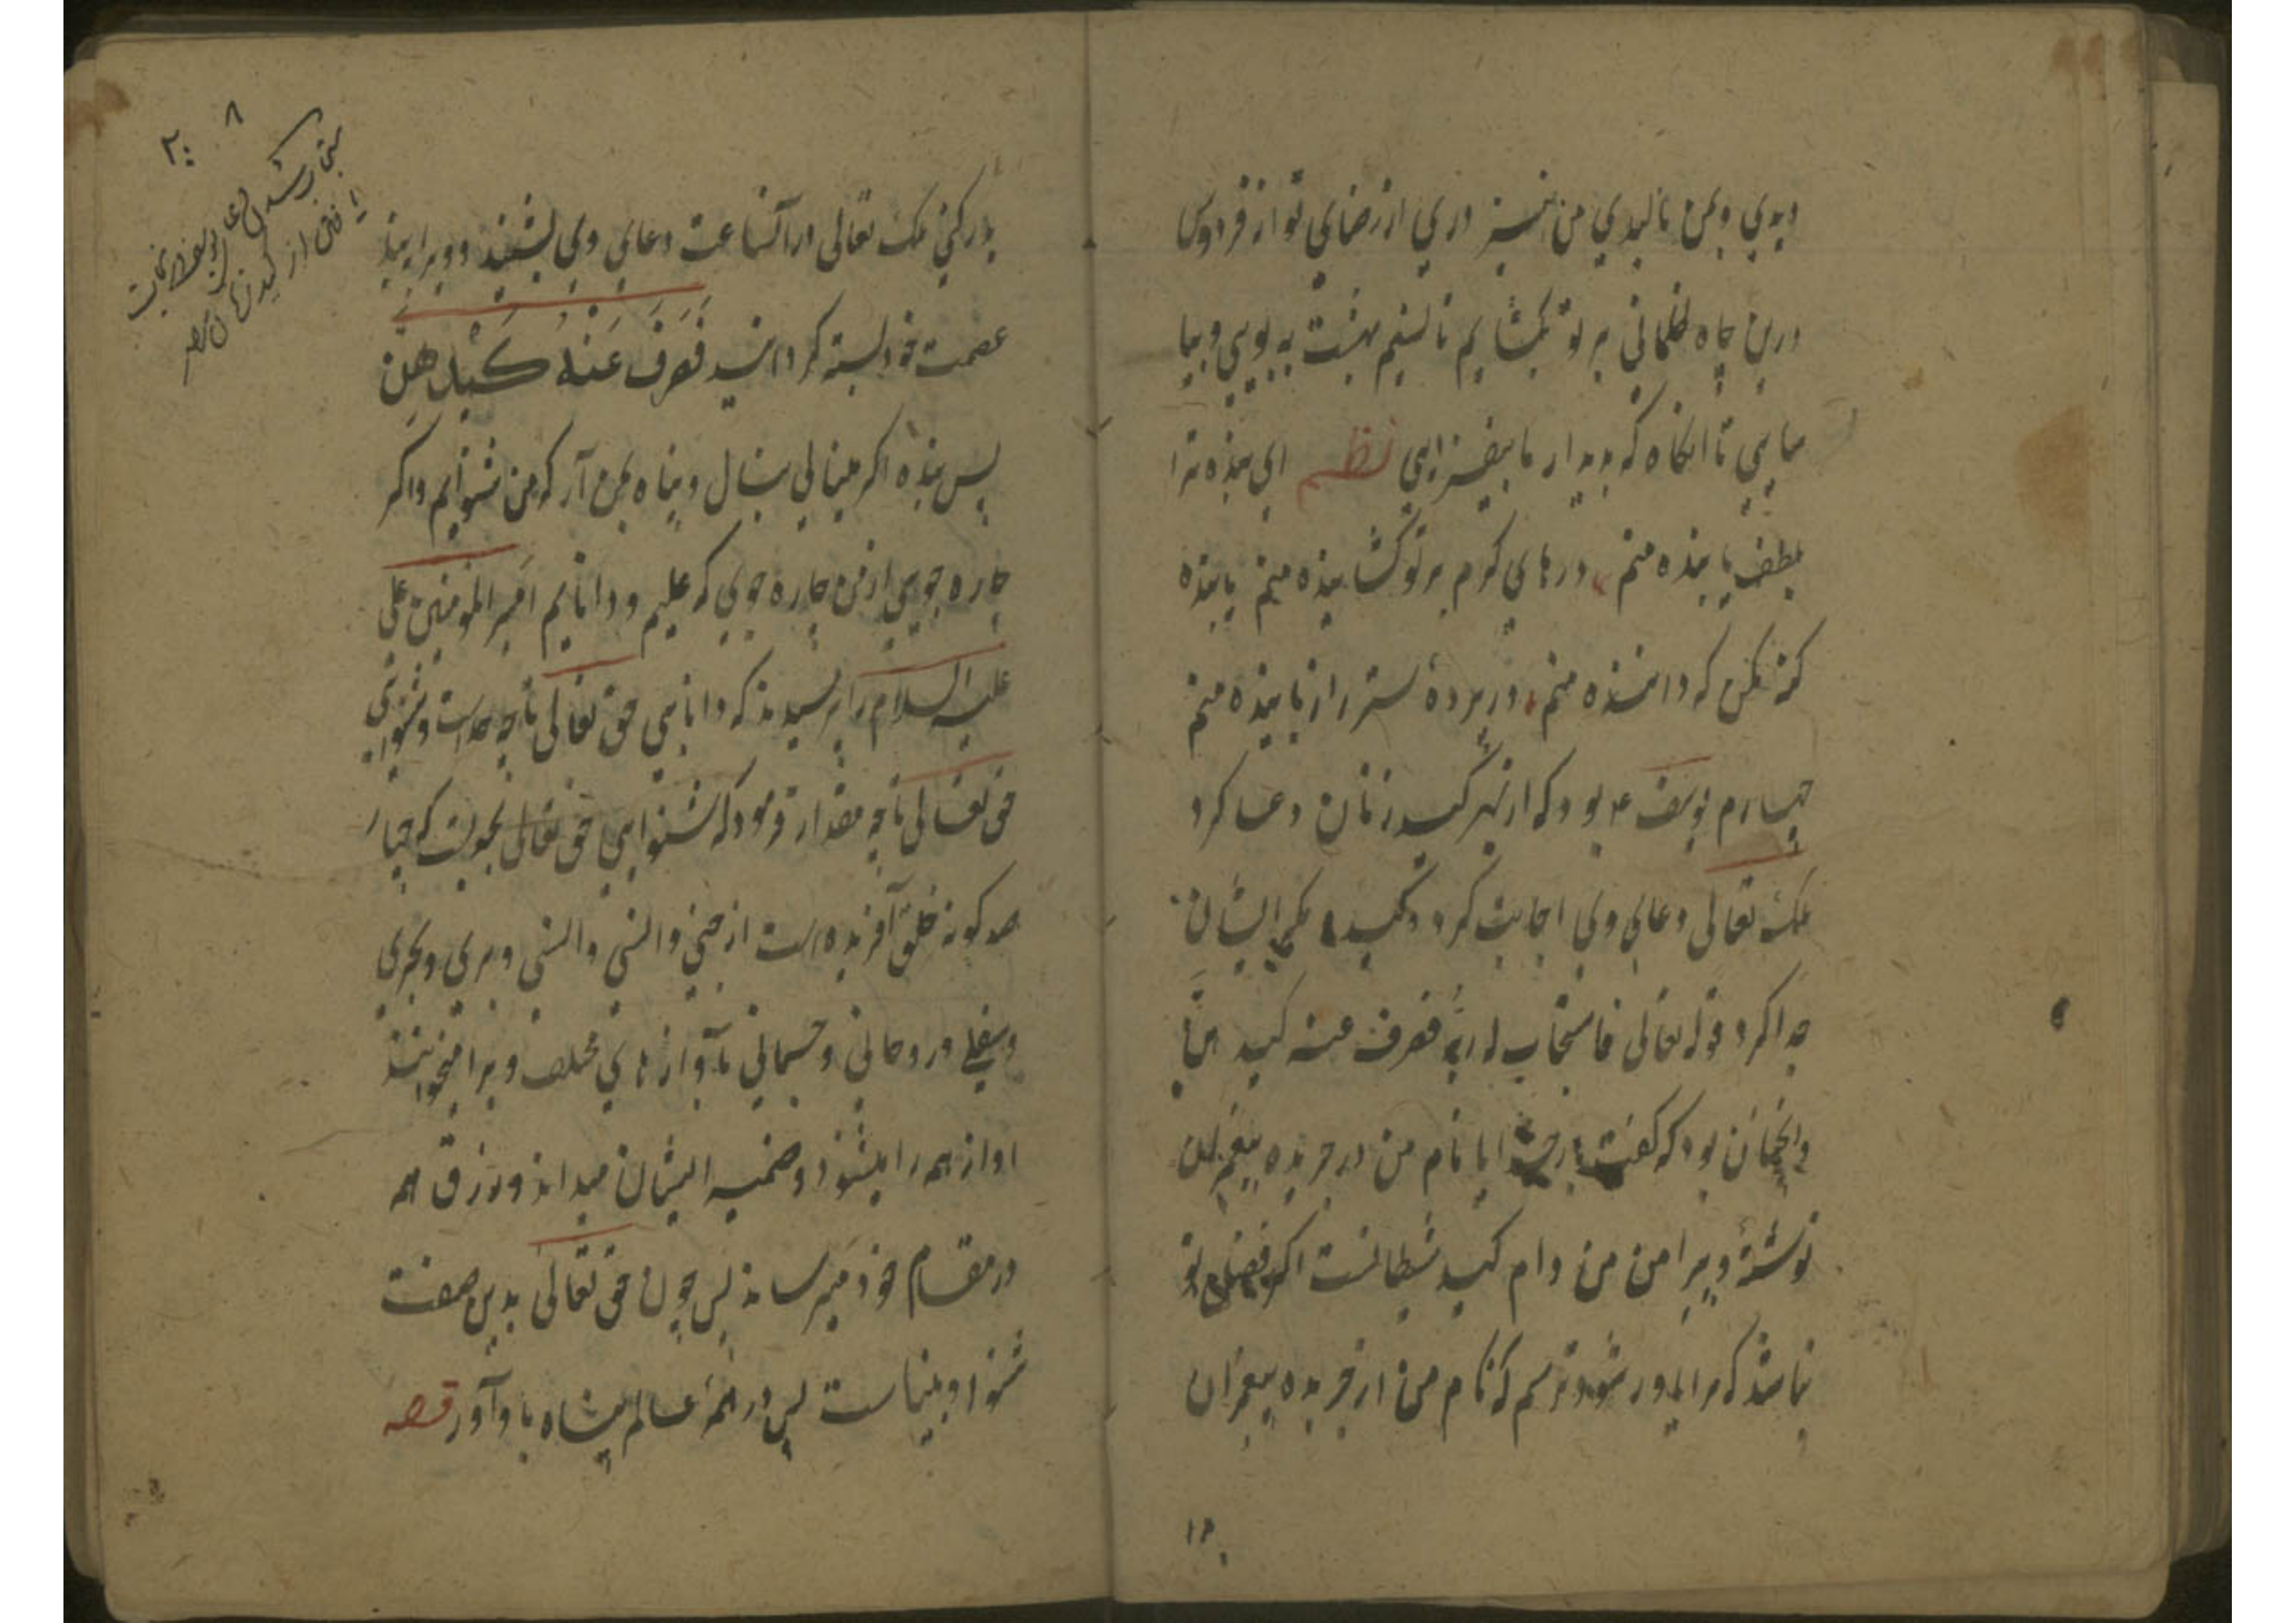 دیدی و بمن نالیدی من نیز دری از رضای تو از فردوس
درین چاه ظلمانی بر تو بگشایم تا نسیم بهشت به بویی و بیا
سایی تا انگاه که بدیدار ما بیفزایی نظم ای بنده ترا
بلطف یابنده منم درهای کرم بر تو گشاینده منم یابنده
کنه مکن که داننده منم در پرده ستر راز یابنده منم
چهارم یوسف ع بود که از بهر کید زنان دعا کرد
ملک تعالی دعای وی اجابت کرد و کید و مکر ایشان
جدا کرد قوله تعالی فاستجاب له ربه فصرف عنه کیدهن
و انچنان بود که گفت بار خدایا نام من در جریده پیغمبران
نوشتهٔ و پیرامن من دام کید شیطانست اگر فضل تو
نباشد که مرا دور شود ترسم که نام من از جریده پیغمبران
۱۲
۸
۲۰
مستجاب شدن دعای یوسف و نجات
یافتن از کید زنان مصر
بدر کنی ملک تعالی در آنساعت دعای وی بشنید و ویرا ببند
عصمت خود بسته گردانید فَصَرَفَ عَنْهُ كَيْدَهُنَّ
پس بنده اگر مینالی بنال و پناه بمن آر که من شنوایم و اگر
چاره جویی از من چاره جوی که علیم و دانایم امیر المؤمنین علی
علیه السلام را پرسیدند که دانایی حق تعالی تا چه حد است و شنوایی
حق تعالی تا چه مقدار فرمود که شنوایی حق تعالی بجویست که چهار
صد گونه خلق آفریده است از جنی و انسی و انسی و بری و بحری
و سفلی و روحانی و جسمانی بآوازهای مختلف ویرا میخوانند
اواز همه را میشنود و ضمیر ایشان میداند و رزق همه
در مقام خود میرساند پس چون حق تعالی بدین صفت
شنوا و بیناست پس در همهٔ عالم پناه باو آور قصه